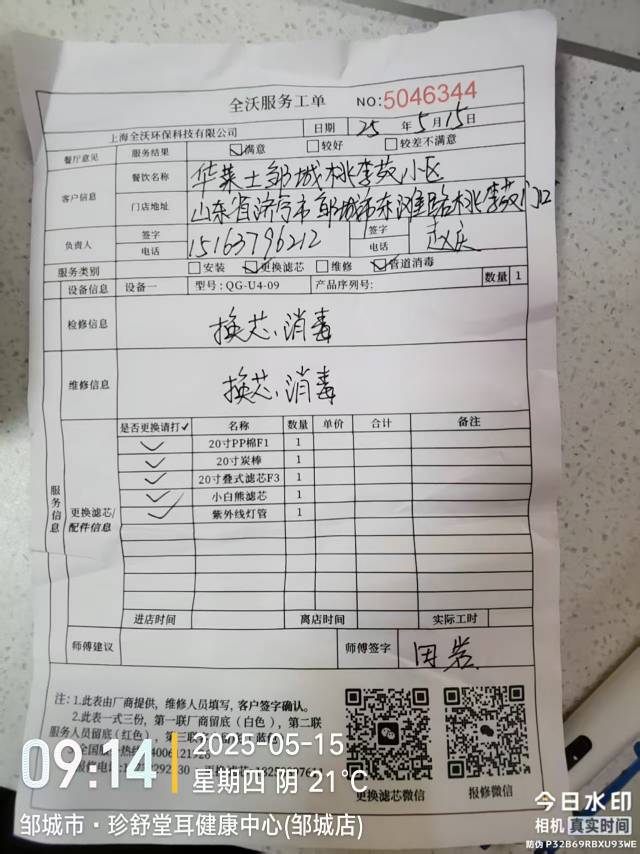 全沃服务工单 NO:5046344
上海全沃环保科技有限公司 日期 25 年 5 月 15 日
餐厅意见 服务结果 ☑满意 □较好 □较差不满意
客户信息 餐饮名称 华莱士邹城桃李苑小区
门店地址 山东省济宁市邹城市东滩路桃李苑门口
负责人 签字 电话 15163796212 签字 电话
服务类别 □安装 ☑更换滤芯 □维修 ☑管道消毒
设备信息 设备一 型号: QG-U4-09 产品序列号: 数量 1
检修信息 换芯、消毒
维修信息 换芯、消毒
服务信息
更换滤芯/配件信息
是否更换请打✓ 名称 数量 单价 合计 备注
✓ 20寸PP棉F1 1
✓ 20寸炭棒 1
✓ 20寸叠式滤芯F3 1
✓ 小白熊滤芯 1
✓ 紫外线灯管 1
进店时间 离店时间 实际工时
师傅建议 师傅签字 田岩
注: 1.此表由厂商提供, 维修人员填写, 客户签字确认。
2.此表一式三份, 第一联厂商留底 (白色), 第二联
服务人员留底(红色), 第三联
全国
报修电话:
更换滤芯微信 报修微信
09:14 2025-05-15
星期四 阴 21℃
邹城市·珍舒堂耳健康中心(邹城店)
今日水印
相机 真实时间
防伪 P32B69RBXU93WE